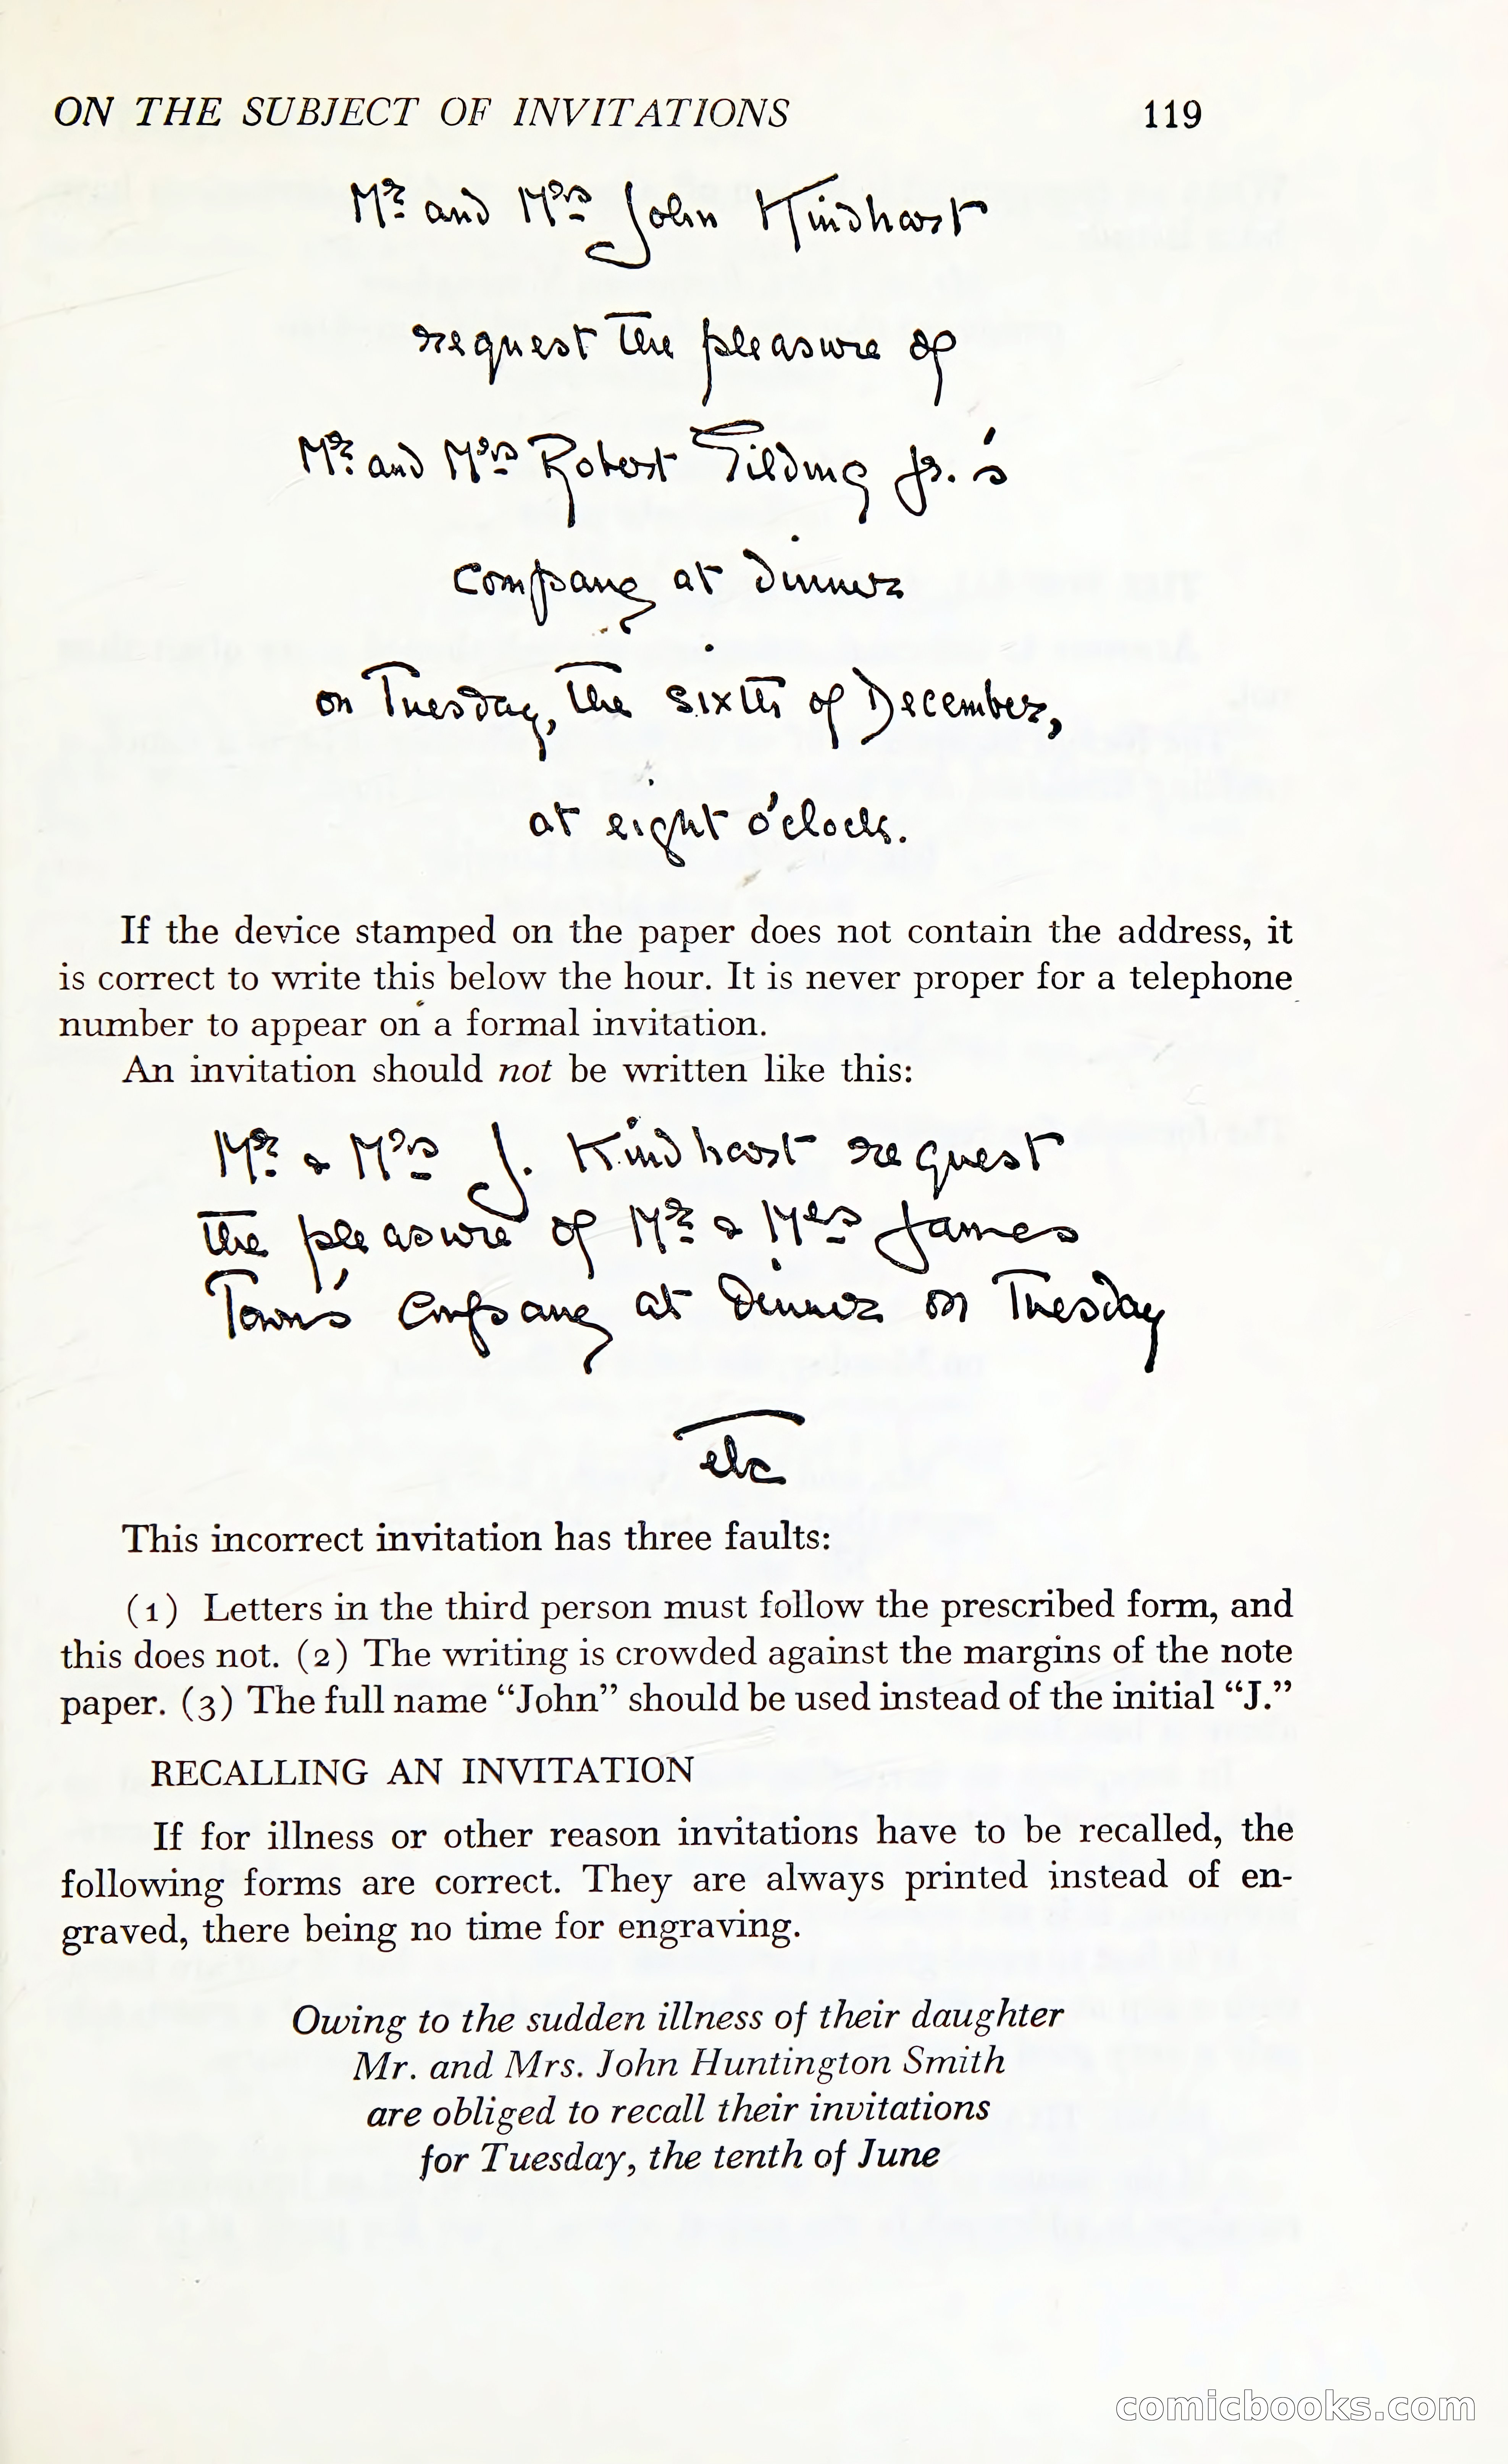 ON THE SUBJECT OF INVITATIONS 119
Mr. and Mrs. John Kindhart
request the pleasure of
Mr. and Mrs. Robert Gilding Jr.'s
company at dinner
on Tuesday, the sixth of December,
at eight o'clock.
If the device stamped on the paper does not contain the address, it
is correct to write this below the hour. It is never proper for a telephone
number to appear on a formal invitation.
An invitation should not be written like this:
Mr. & Mrs. J. Kindhart request
the pleasure of Mr. & Mrs. James
Town's company at dinner on Tuesday
etc
This incorrect invitation has three faults:
(1) Letters in the third person must follow the prescribed form, and
this does not. (2) The writing is crowded against the margins of the note
paper. (3) The full name “John” should be used instead of the initial “J.”
RECALLING AN INVITATION
If for illness or other reason invitations have to be recalled, the
following forms are correct. They are always printed instead of en-
graved, there being no time for engraving.
Owing to the sudden illness of their daughter
Mr. and Mrs. John Huntington Smith
are obliged to recall their invitations
for Tuesday, the tenth of June
comicbooks.com